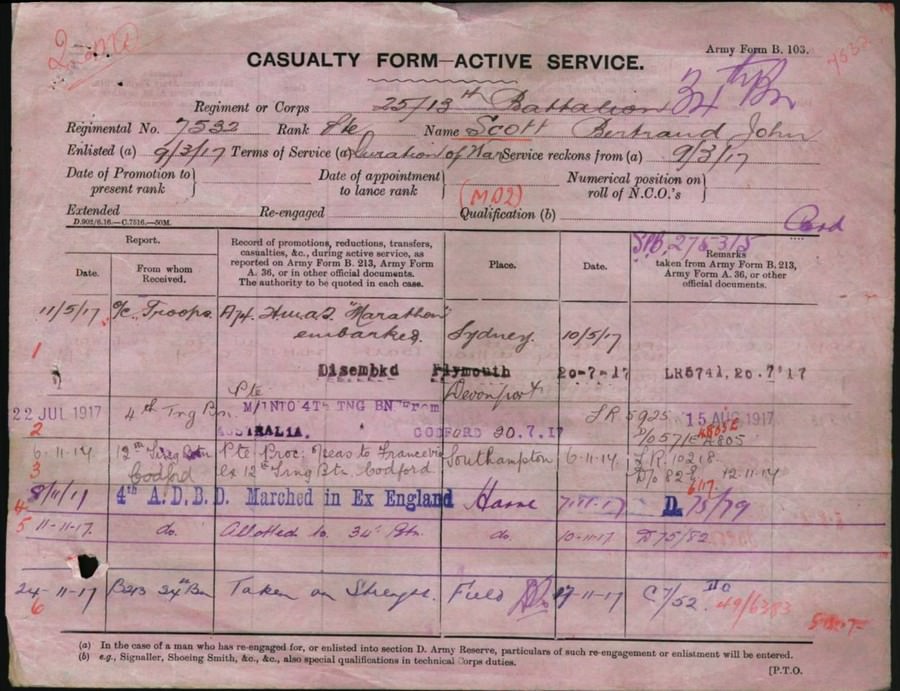 Army Form B. 103.
CASUALTY FORM—ACTIVE SERVICE.
Regiment or Corps 25/13th Battalion 34th Bn
Regimental No. 7532 Rank Pte Name Scott Bertrand John
Enlisted (a) 9/3/17 Terms of Service (a) Duration of War Service reckons from (a) 9/3/17
Date of Promotion to present rank } Date of appointment to lance rank } Numerical position on roll of N.C.O.'s }
(MD2)
Extended Re-engaged Qualification (b)
D.902/6.16.—C.7516.—50M.
Card
Report.
Date.
From whom Received.
Record of promotions, reductions, transfers, casualties, &c., during active service, as reported on Army Form B. 213, Army Form A. 36, or in other official documents. The authority to be quoted in each case.
Place.
Date.
Remarks taken from Army Form B. 213, Army Form A. 36, or other official documents.
11/5/17 O/C Troops "Marathon" embarked. Sydney. 10/5/17
1
Disembkd Plymouth 20-7-17 LR5741, 20.7'17
Pte Devonport
22 JUL 1917 4th Tng Bn. M/INTO 4TH TNG BN From AUSTRALIA. CODFORD 20.7.17 LR 5925 15 AUG 1917
2
6.11.17 12th Trng Btn Codford Pte Proc: Oseas to France via Southampton 6.11.17 LR 10218
ex 12th Trng Btn. Codford 12.11.17
3
8/11/17 4th A.D.B.D. Marched in Ex England Havre 7.11.17 D. 75/79
4
5 11-11-17. do. Allotted to 34th Btn. do. 10-11-17. D75/82
24-11-17 B213 34th Bn Taken on Strength. Field 17-11-17 C7/52 49/6383
6
(a) In the case of a man who has re-engaged for, or enlisted into section D. Army Reserve, particulars of such re-engagement or enlistment will be entered.
(b) e.g., Signaller, Shoeing Smith, &c., &c., also special qualifications in technical Corps duties.
[P.T.O.